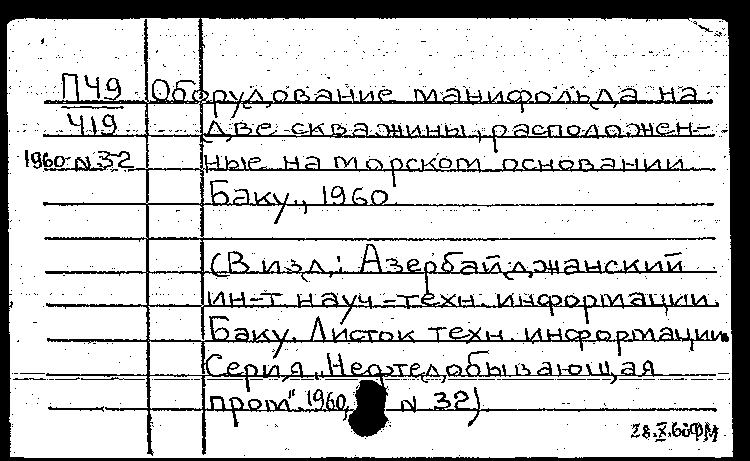 П49 Оборудование манифольда на
419 две скважины, расположен-
1960 N 32 ные на морском основании
Баку., 1960.
(В изд.: Азербайджанский
ин-т науч.-техн. информации.
Баку. Листок техн. информации.
Серия „Нефтедобывающая
пром". 1960, N 32)
28.X.60